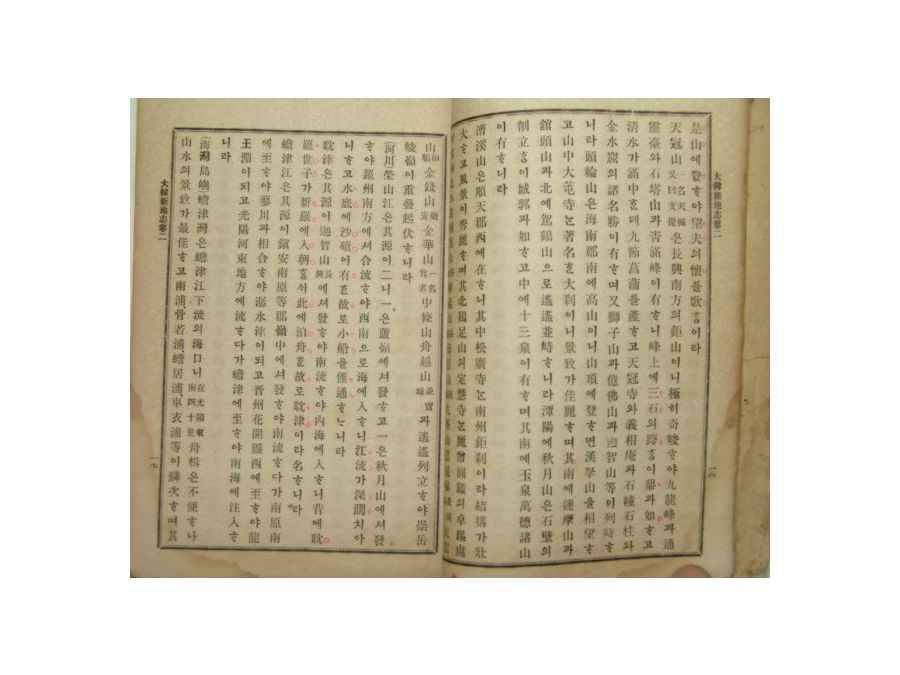 大韓新地志卷二
是山에登ᄒᆞ야望夫의懷를歌ᄒᆞᆷ이라
天冠山一名天風又曰支提은長興南方의鉅山이니極히奇峻ᄒᆞ야九龍峰과通
靈臺와石塔山과靑滿峰이有ᄒᆞ니峰上에三石의跨ᄒᆞᆷ이鼎과如ᄒᆞ고
清水가滿中ᄒᆞᆫᄃᆡ九節菖蒲를產ᄒᆞ고天冠寺와義相庵과石幢石柱와
金水窟의諸名勝이有ᄒᆞ며又獅子山과億佛山과迦智山等이列峙ᄒᆞ
니라頭輪山은海南郡南에高山이니山頂에登ᄒᆞ면漢拏山을相望ᄒᆞ
고山中大芚寺ᄂᆞᆫ著名ᄒᆞᆫ大刹이니景致가佳麗ᄒᆞ며其南에達摩山과
舘頭山과北에駕鶴山으로遙遙並峙ᄒᆞ니라潭陽에秋月山은石壁의
削立ᄒᆞᆷ이城郭과如ᄒᆞ고中에十三泉이有ᄒᆞ며其南에玉泉萬德諸山
이有ᄒᆞ니라
漕溪山은順天郡西에在ᄒᆞ니其中松廣寺ᄂᆞᆫ南州鉅刹이라結搆가壯
大ᄒᆞ고風景이秀麗ᄒᆞ며其北鷄足山의定慧寺ᄂᆞᆫ麗僧圓鑑의卓錫處
一六
山和順金錢山樂安金華山一名寶名中條山舟越山並寶城과遙遙列立ᄒᆞ야崇岳
峻嶺이重疊起伏ᄒᆞ니라
(河川)榮山江은其源이二니一은蘆嶺에셔發ᄒᆞ고一은秋月山에셔發
ᄒᆞ야羅州南方에셔合流ᄒᆞ야西南으로海에入ᄒᆞ니江流가深濶치아
니ᄒᆞ고水底에沙磧이有ᄒᆞᆫ故로小船을僅通ᄒᆞᄂᆞ니라
耽津은其源이迦智山長興에셔發ᄒᆞ야南流ᄒᆞ야內海에入ᄒᆞ니昔에耽
羅世子가新羅에入朝ᄒᆞᆯᄉᆡ此에泊舟ᄒᆞᆫ故로耽津이라名ᄒᆞ니라
蟾津江은其源이鎭安南原等郡嶺中에셔發ᄒᆞ야南流ᄒᆞ다가南原南
에至ᄒᆞ야蓼川과相合ᄒᆞ야潺水津이되고晋州花開縣西에至ᄒᆞ야龍
王淵이되고光陽河東地方에流ᄒᆞ다가蟾津에至ᄒᆞ야南海에注入ᄒᆞ
니라
(海灣島嶼)蟾津灣은蟾津江下流의海口니在光陽東南四十里舟楫은不便ᄒᆞ나
山水의景致가最佳ᄒᆞ고南浦、骨若浦、蟾居浦、車衣浦等이鱗次ᄒᆞ며其
大韓新地志卷二
一七